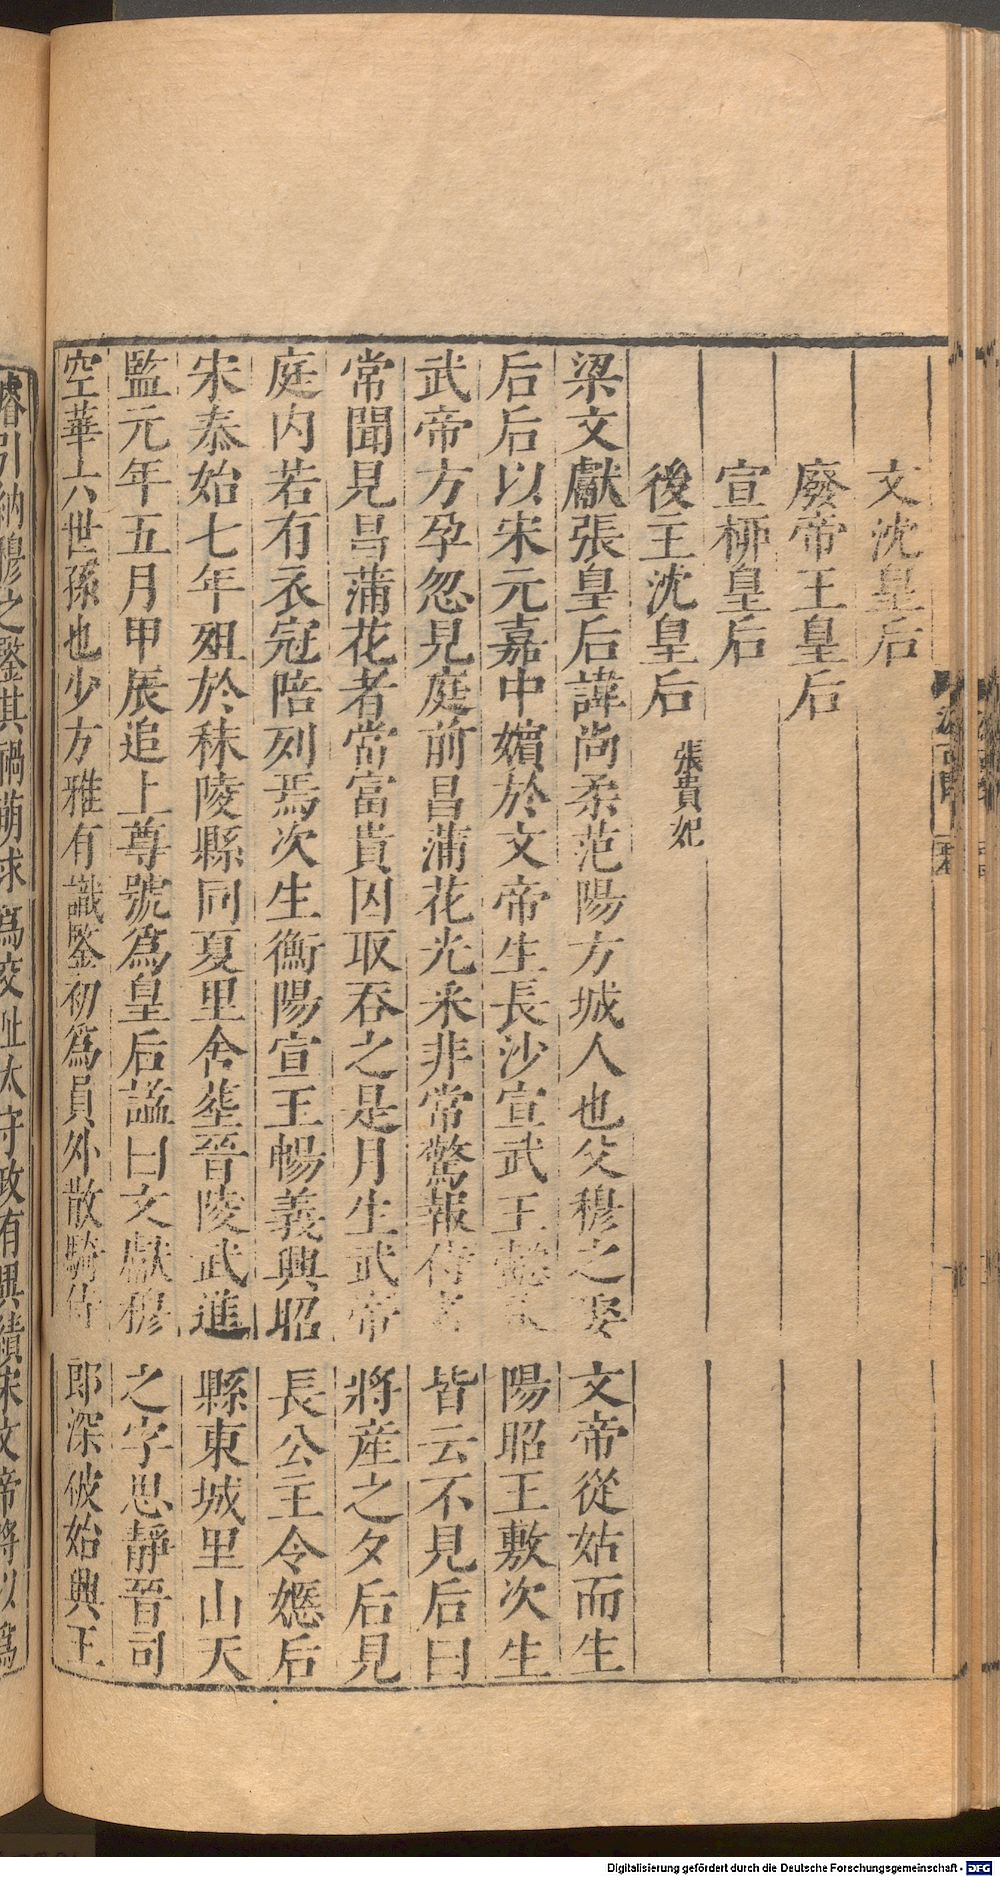 文沈皇后
廢帝王皇后
宣柳皇后
後王沈皇后 張貴妃
梁文獻張皇后諱尚柔范陽方城人也父穆之娶文帝從姑而生
后后以宋元嘉中嬪於文帝生長沙宣武王懿永陽昭王敷次生
武帝方孕忽見庭前昌蒲花光采非常驚報侍者皆云不見后曰
常聞見昌蒲花者當富貴因取吞之是月生武帝將產之夕后見
庭内若有衣冠陪列焉次生衡陽宣王暢義興昭長公主令嫕后
宋泰始七年殂於秣陵縣同夏里舍葬晉陵武進縣東城里山天
監元年五月甲辰追上尊號爲皇后謚曰文獻穆之字思靜晉司
空華六世孫也少方雅有識鑒初爲員外散騎侍郎深被始興王
濬引納穆之鑒其禍萌求爲交阯太守政有異績宋文帝將以爲
Digitalisierung gefördert durch die Deutsche Forschungsgemeinschaft - DFG